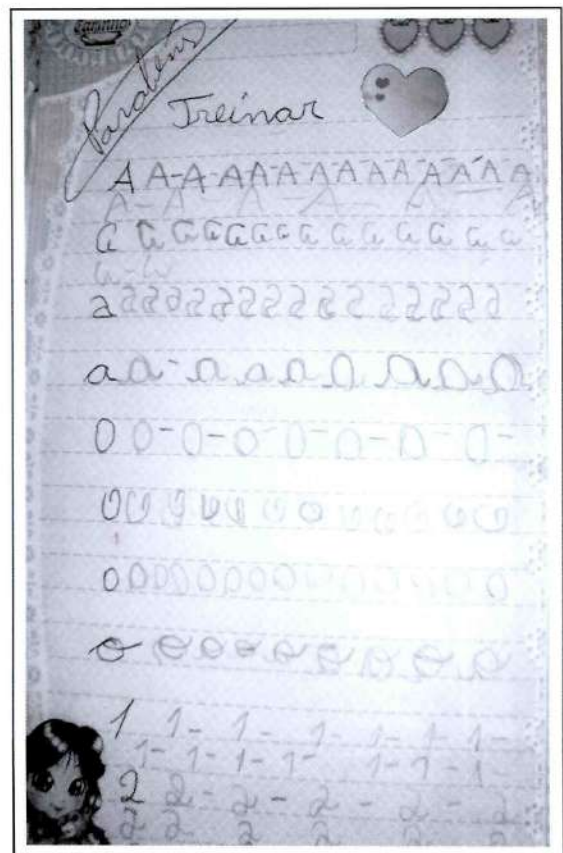 Carinho
Parabéns
Treinar
A A-A-A A-A-A A A A A-A-A
A-A A A- A A
a a a a a a a a a a a a a
a-a
a a a a a a a a a a a a a a
a a- a a a a a a a
O O-O-O-O-O-O-O-
O O O O O O O O O O O O
o o o o o o o o o o o o o o
o o o o o o o o o
1 1- 1- 1- 1- 1- 1-
1- 1- 1- 1- 1-1-1-
2 2- 2- 2- 2- 2
2 2 2 2 2 2